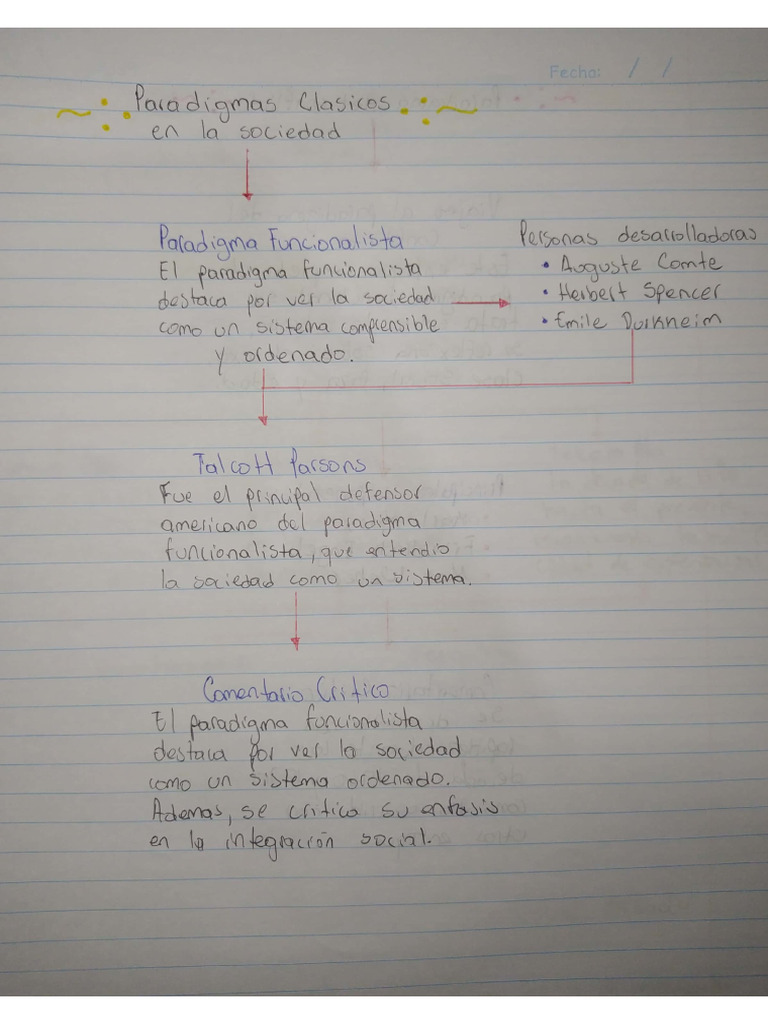 Fecha: / /
Paradigmas Clasicos
en la sociedad
Paradigma Funcionalista
El paradigma funcionalista
destaca por ver la sociedad
como un sistema comprensible
y ordenado.
Personas desarrolladoras
• Auguste Comte
• Herbert Spencer
• Emile Durkneim
Talcott Parsons
Fue el principal defensor
americano del paradigma
funcionalista, que entendio
la sociedad como un sistema.
Comentario Critico
El paradigma funcionalista
destaca por ver la sociedad
como un sistema ordenado.
Ademas, se critico su enfasis
en la integración social.